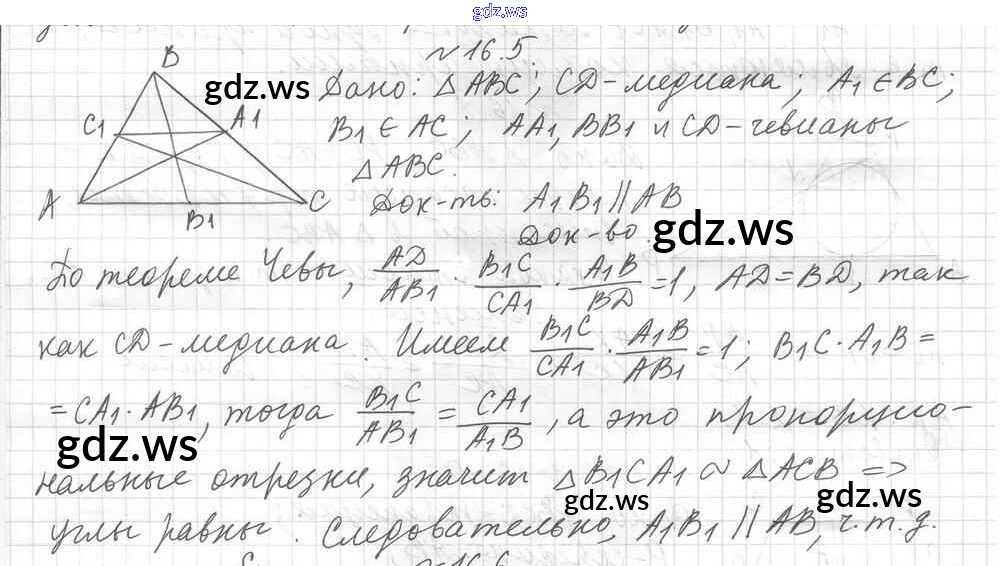 gdz.ws
№16.5
B
gdz.ws
Дано: △ABC; CD-медиана; A1∈BC;
C1
A1
B1∈AC; AA1, BB1 и CD-чевианы
△ABC.
A
B1
C
Док-ть: A1B1 || AB
Док-во.
gdz.ws
По теореме Чевы, AD/AB1 · B1C/CA1 · A1B/BD = 1, AD=BD, так
как CD-медиана. Имеем B1C/CA1 · A1B/AB1 = 1; B1C·A1B=
=CA1·AB1, тогда B1C/AB1 = CA1/A1B, а это пропорцио-
gdz.ws
нальные отрезки, значит △B1CA1 ~ △ACB =>
gdz.ws
gdz.ws
углы равны. Следовательно, A1B1 || AB, ч.т.д.
№16.6